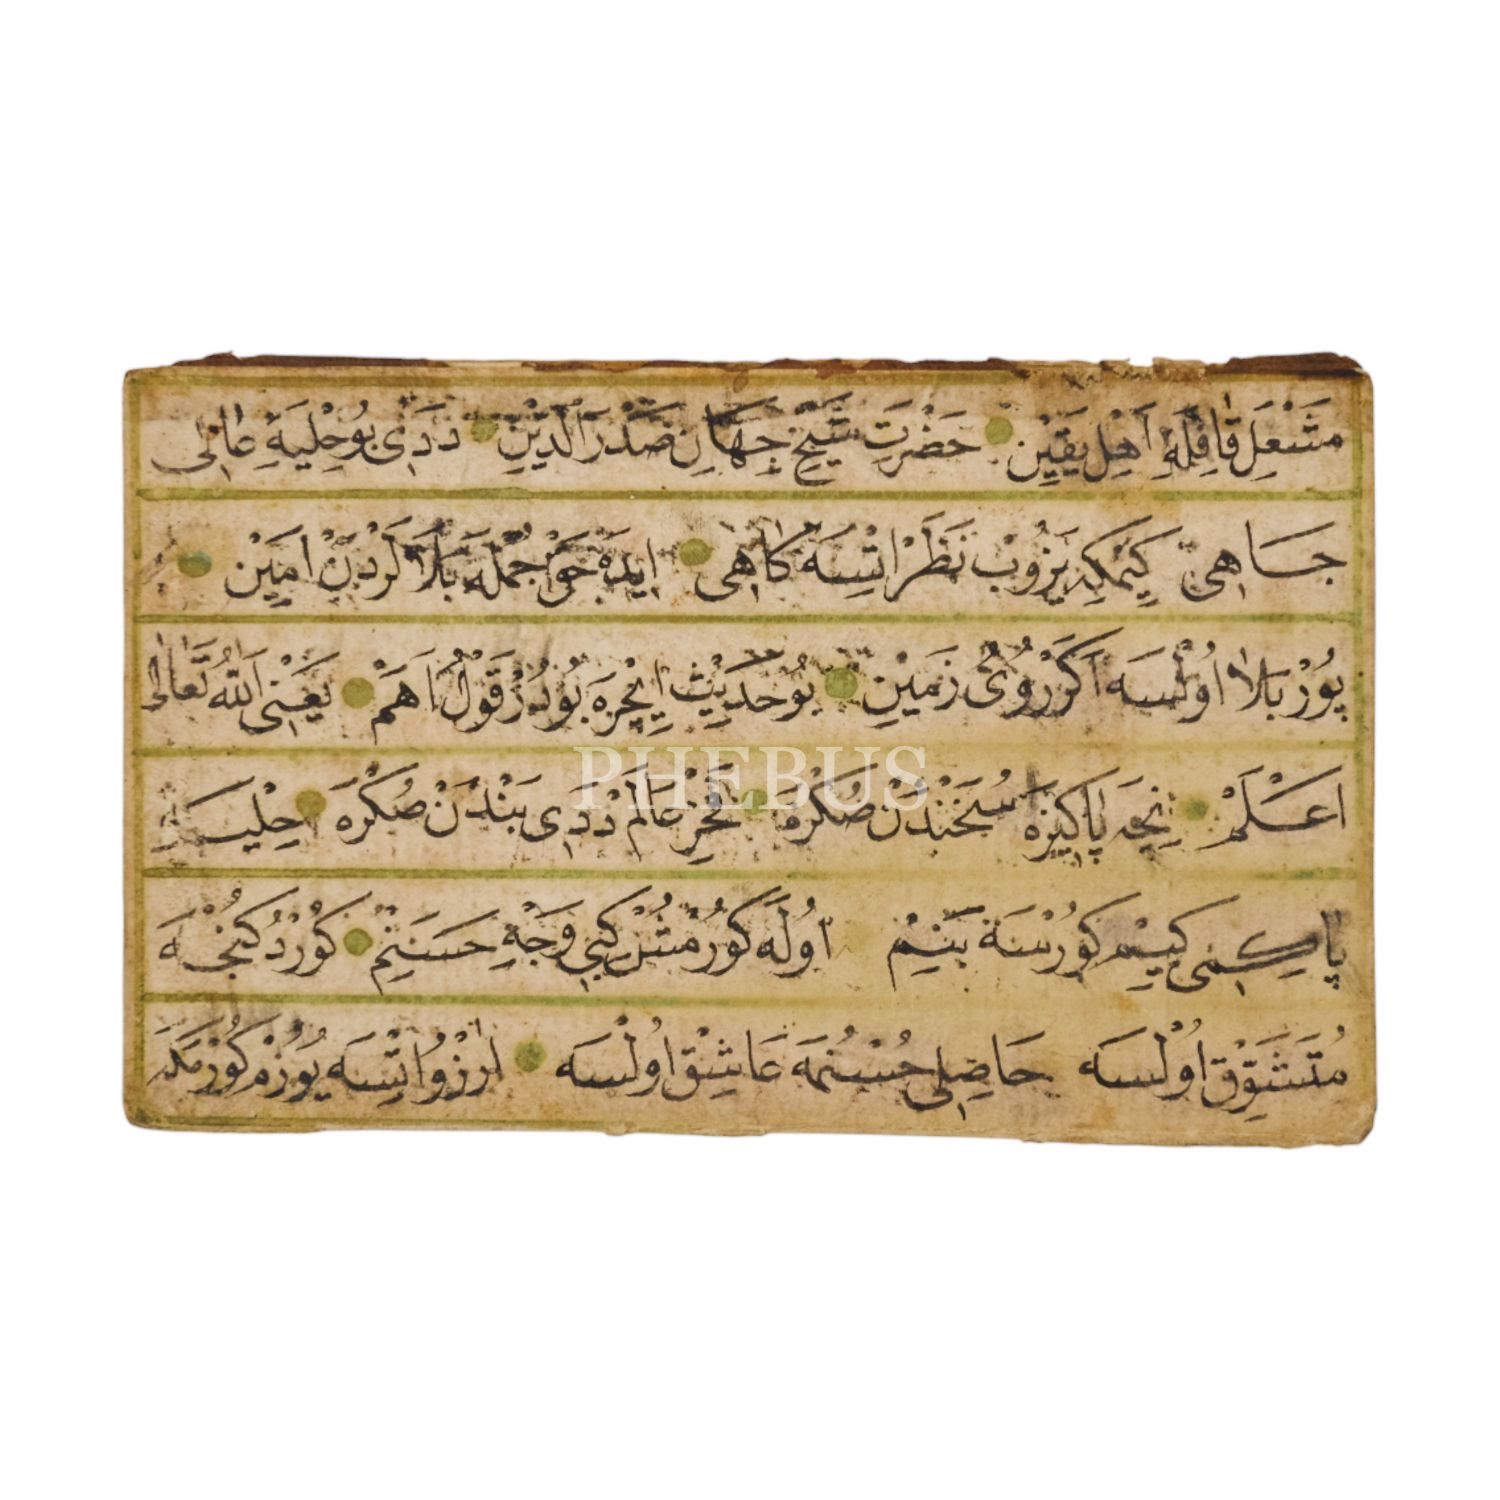 مَشْعَلِ قَافِلَهِٔ اَهْلِ يَقِيْنِ حَضْرَتِ شَيْخِ جِهَانِ صَدْرَالدِّيْنِ دَدِى بُو حِلْيَهِٔ عَالِى
جَاهِى كِيْمَكِه يَزُوبْ نَظَرْ اِتْسَه كَاهِى اِيدَه حَقْ جُمْلَه بَلَالَرْدَنْ اَمِيْن
يُوزْ بَلَا اُولْسَه اَكَرْ رُوىِ زَمِيْنِ بُو حَدِيْث اِيچْرَه بُودُرْ قَوْلِ اَهَمْ يَعْنِى اَللّٰهُ تَعَالٰى
اَعْلَمْ نِيجَه پَاكِيزَه سُخَنْدَنْ صُكْرَه فَخْرِ عَالَمْ دَدِى بَنْدَنْ صُكْرَه حِلْيَهِٔ
پَاكِمِى كِيمْ كُورْسَه بَنِمْ اُولَه كُورْمُشْ كِبِى وَجْهِ حَسَنِمْ كُورْدُكِنْجَه
مُتَشَوِّقْ اُولْسَه حَاصِلِى حُسْنُمَه عَاشِقْ اُولْسَه اَرْزُو اِتْسَه يُوزُمْ كُورْمَكَه
PHEBUS